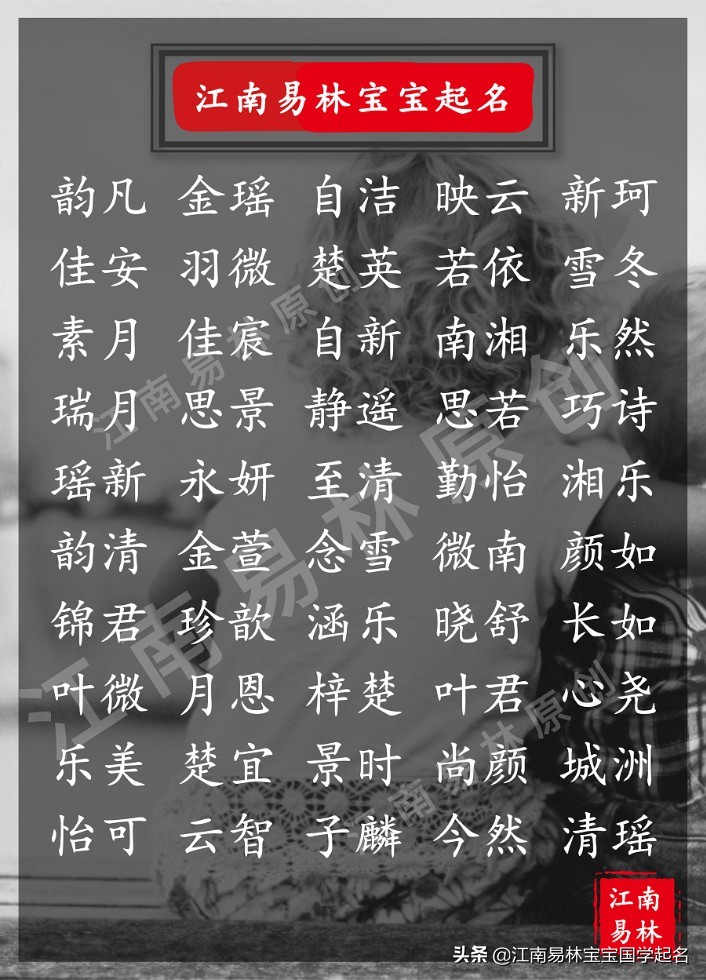 江南易林宝宝起名
韵凡 金瑶 自洁 映云 新珂
佳安 羽微 楚英 若依 雪冬
素月 佳宸 自新 南湘 乐然
瑞月 思景 静遥 思若 巧诗
瑶新 永妍 至清 勤怡 湘乐
韵清 金萱 念雪 微南 颜如
锦君 珍歆 涵乐 晓舒 长如
叶微 月恩 梓楚 叶君 心尧
乐美 楚宜 景时 尚颜 城洲
怡可 云智 子麟 今然 清瑶
江南易林原创
江南易林原创
江南易林原创
江南
易林
头条 @江南易林宝宝国学起名